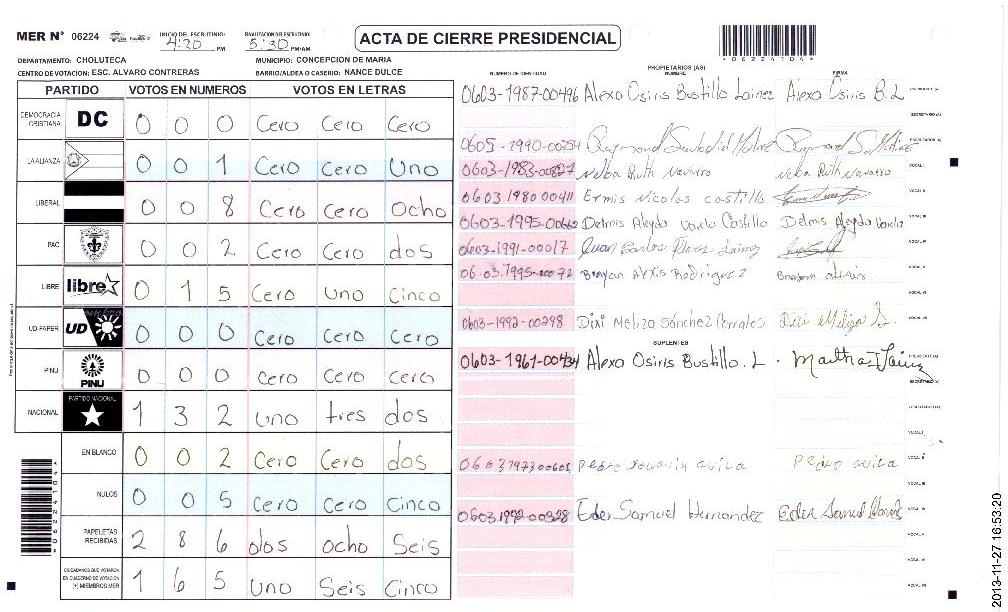 MER N° 06224
INICIO DEL ESCRUTINIO: 4:20 PM
FINALIZACION DEL ESCRUTINIO: 5:30 PM/AM
ACTA DE CIERRE PRESIDENCIAL
*06224104*
DEPARTAMENTO: CHOLUTECA
MUNICIPIO: CONCEPCION DE MARIA
CENTRO DE VOTACION: ESC. ALVARO CONTRERAS
BARRIO/ALDEA O CASERIO: NANCE DULCE
PARTIDO VOTOS EN NUMEROS VOTOS EN LETRAS
DEMOCRACIA CRISTIANA DC 0 0 0 Cero Cero Cero
LA ALIANZA 0 0 1 Cero Cero Uno
LIBERAL 0 0 8 Cero Cero Ocho
PAC 0 0 2 Cero Cero dos
LIBRE libre 0 1 5 Cero Uno Cinco
UD-FAPER UD 0 0 0 Cero Cero Cero
PINU PINU 0 0 0 Cero Cero Cero
NACIONAL PARTIDO NACIONAL 1 3 2 uno tres dos
EN BLANCO 0 0 2 Cero Cero dos
NULOS 0 0 5 Cero Cero Cinco
PAPELETAS RECIBIDAS 2 8 6 dos ocho Seis
CIUDADANOS QUE VOTARON EN CUADERNO DE VOTACION (+) MIEMBROS MER 1 6 5 Uno Seis Cinco
PROPIETARIOS (AS)
NUMERO DE IDENTIDAD NOMBRE FIRMA
0603-1987-00496 Alexa Osiris Bustillo Lainez Alexa Osiris B.L
SECRETARIO (A)
0605-1990-00254 Raymond
0603-1983-00827 Nelba Ruth Navarro Nelba Ruth Navarro VOCAL I
0603 1980 00411 Ermis Nicolas castillo VOCAL II
0603-1995-00660 Delmis Aleyda Varela Castillo Delmis Aleyda Varela VOCAL III
0603-1991-00017 Juan Carlos Flores Lainez VOCAL IV
06-03-1995-00072 Brayan Alexis Rodriguez Brayan Alexis VOCAL V
VOCAL VI
0603-1992-00298 Dixi Meliza Sánchez Corrales Dixi Meliza S. VOCAL VII
SUPLENTES
0603-1961-00434 Alexa Osiris Bustillo. L. Martha
SECRETARIO (A)
VOCAL I
0603197300601 Pedro Joaquin avila Pedro avila VOCAL II
VOCAL III
0603-1992-00328 Eder Samuel Hernandez Eder Samuel VOCAL IV
VOCAL V
VOCAL VI
VOCAL VII
2013-11-27 16:53:20